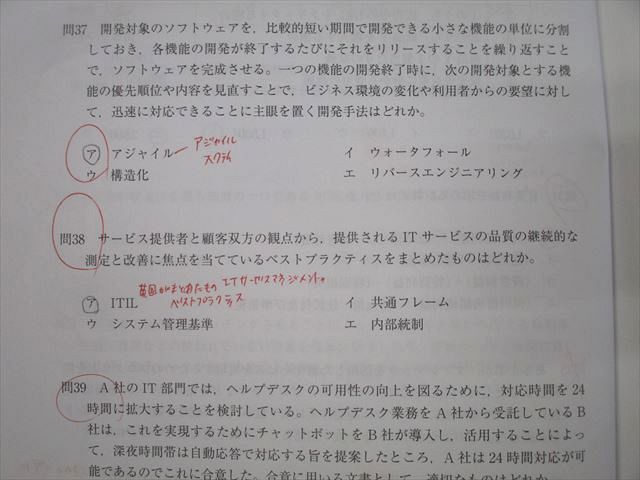 問37 開発対象のソフトウェアを，比較的短い期間で開発できる小さな機能の単位に分割
しておき，各機能の開発が終了するたびにそれをリリースすることを繰り返すこと
で，ソフトウェアを完成させる。一つの機能の開発終了時に，次の開発対象とする機
能の優先順位や内容を見直すことで，ビジネス環境の変化や利用者からの要望に対し
て，迅速に対応できることに主眼を置く開発手法はどれか。
アジャイル
スクラム
ア アジャイル イ ウォータフォール
ウ 構造化 エ リバースエンジニアリング
問38 サービス提供者と顧客双方の観点から，提供される IT サービスの品質の継続的な
測定と改善に焦点を当てているベストプラクティスをまとめたものはどれか。
英国がまとめたもの ITサービスマネジメントの
ベストプラクティス
ア ITIL イ 共通フレーム
ウ システム管理基準 エ 内部統制
問39 A 社の IT 部門では，ヘルプデスクの可用性の向上を図るために，対応時間を 24
時間に拡大することを検討している。ヘルプデスク業務を A 社から受託している B
社は，これを実現するためにチャットボットを B 社が導入し，活用することによっ
て，深夜時間帯は自動応答で対応する旨を提案したところ，A 社は 24 時間対応が可
能であるのでこれに合意した。合意に用いる文書として，適切なものはどれか